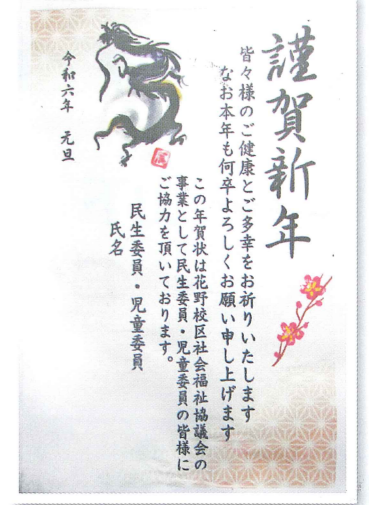 謹賀新年
皆々様のご健康とご多幸をお祈りいたします
なお本年も何卒よろしくお願い申し上げます
この年賀状は花野校区社会福祉協議会の
事業として民生委員・児童委員の皆様に
ご協力を頂いております。
民生委員・児童委員
氏名
令和六年 元旦